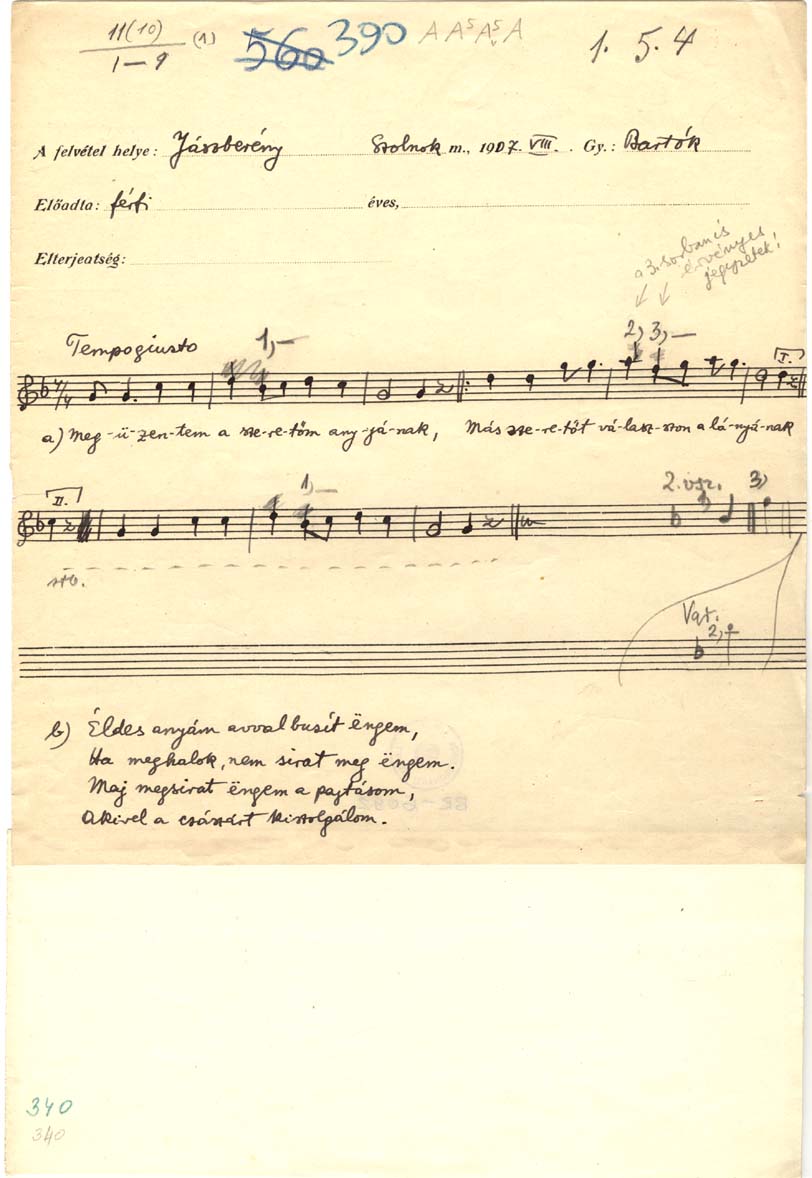 11(10)
1–9
(1)
560 390 A A⁵ A⁵ᵥ A
1. 5. 4
A felvétel helye: Jászberény Szolnok m., 1907. VIII. Gy.: Bartók
Előadta: férfi éves,
Elterjeatség:
a 3. sorban is
érvényes
jegyzetek!
Tempo giusto 1,— 2, 3,—
I.
a) Meg-ü-zen-tem a sze-re-tőm any-já-nak, Más sze-re-tőt vá-lasz-szon a lá-nyá-nak
II. 1,— 2. vsz. 3,
stb.
Var.
2,
b) Éldes anyám avval busít ëngem,
Ha meghalok, nem sirat meg ëngem.
Maj megsirat ëngem a pajtásom,
Akivel a császárt kiszolgálom.
340
340